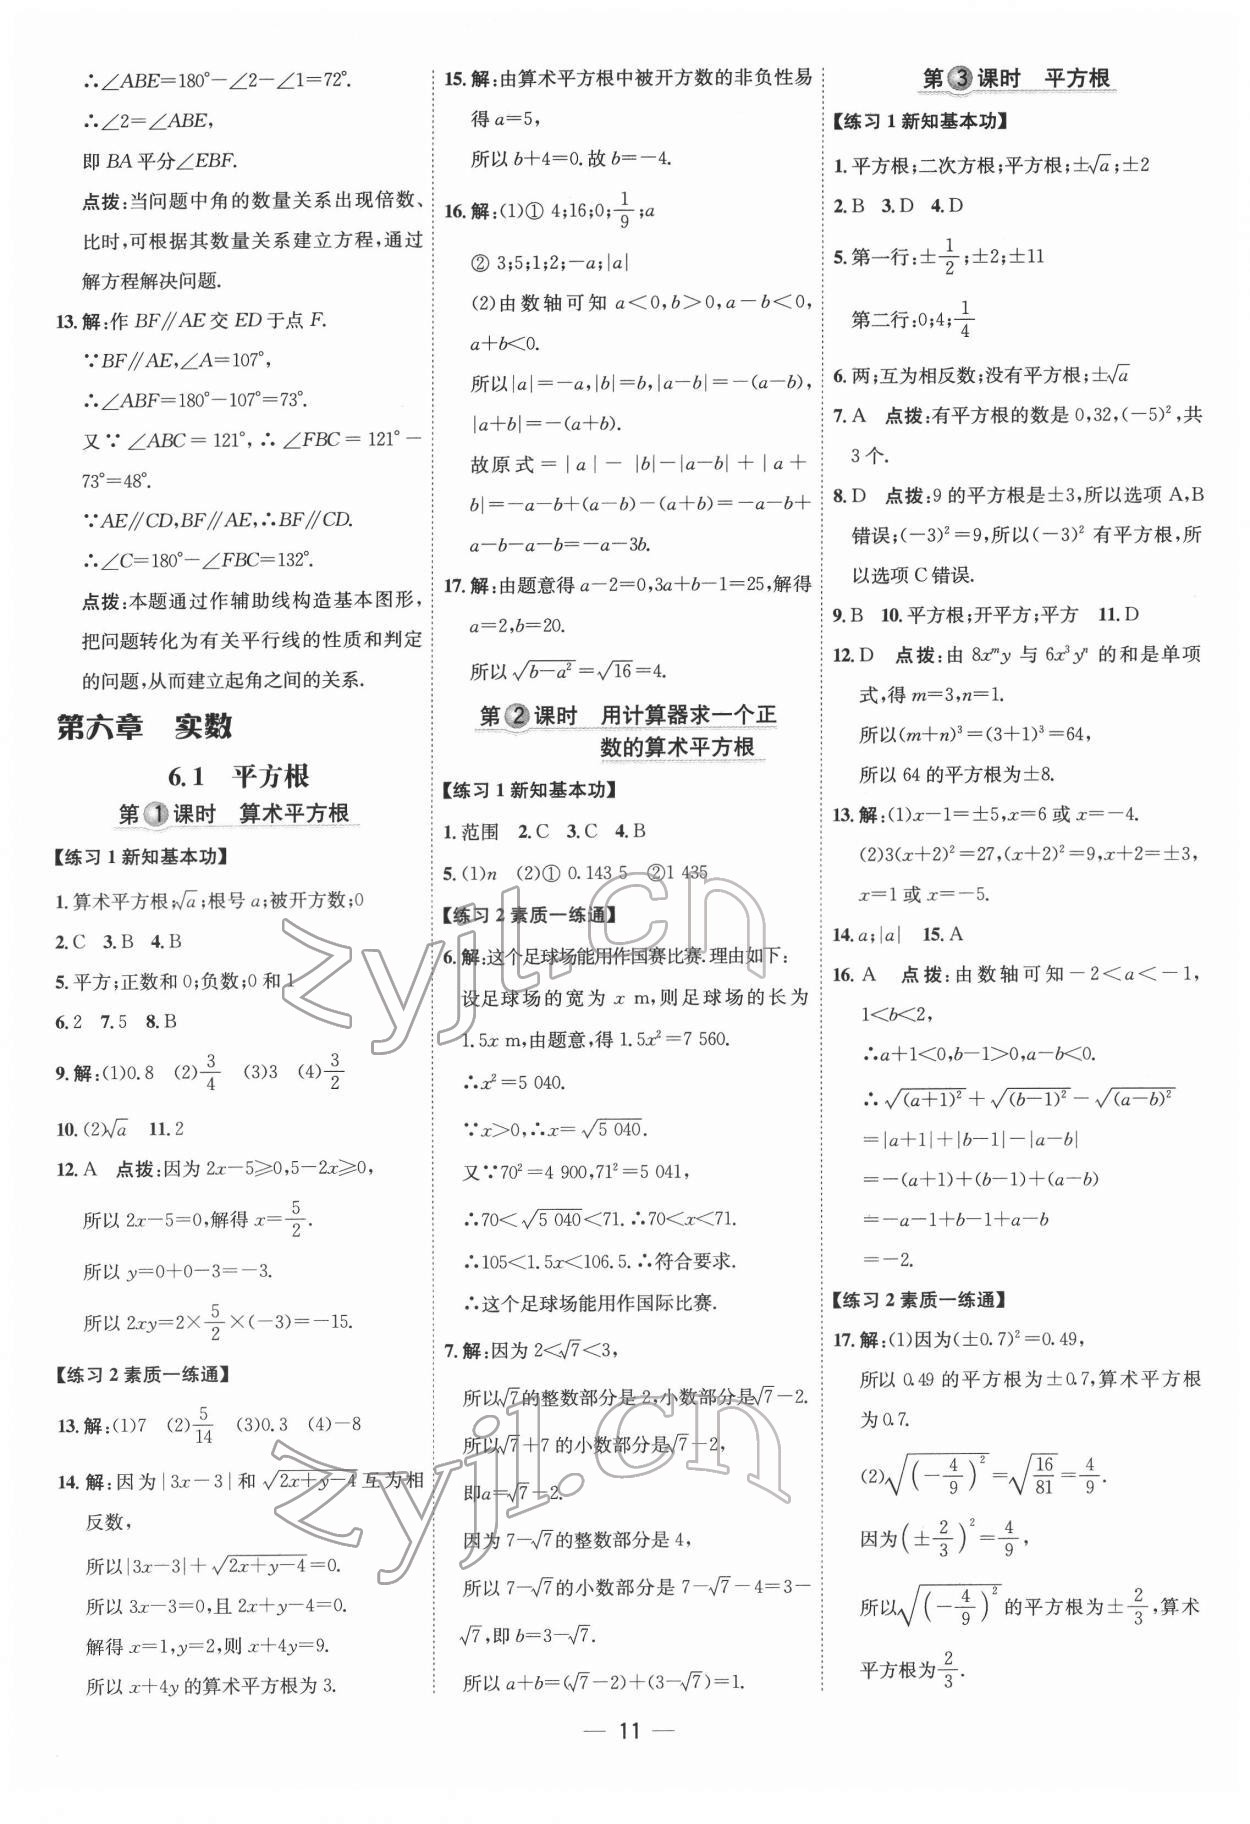 ∴∠ABE=180°-∠2-∠1=72°.
∴∠2=∠ABE,
即 BA 平分∠EBF.
点拨:当问题中角的数量关系出现倍数、
比时,可根据其数量关系建立方程,通过
解方程解决问题.
13.解:作 BF∥AE 交 ED 于点 F.
∵BF∥AE,∠A=107°,
∴∠ABF=180°-107°=73°.
又∵∠ABC=121°,∴∠FBC=121°-
73°=48°.
∵AE∥CD,BF∥AE,∴BF∥CD.
∴∠C=180°-∠FBC=132°.
点拨:本题通过作辅助线构造基本图形,
把问题转化为有关平行线的性质和判定
的问题,从而建立起角之间的关系.
第六章 实数
6.1 平方根
第1课时 算术平方根
【练习1新知基本功】
1.算术平方根;√a;根号a;被开方数;0
2.C 3.B 4.B
5.平方;正数和0;负数;0和1
6.2 7.5 8.B
9.解:(1)0.8 (2)3/4 (3)3 (4)3/2
10.(2)√a 11.2
12.A 点拨:因为2x-5≥0,5-2x≥0,
所以2x-5=0,解得x=5/2.
所以y=0+0-3=-3.
所以2xy=2×5/2×(-3)=-15.
【练习2素质一练通】
13.解:(1)7 (2)5/14 (3)0.3 (4)-8
14.解:因为|3x-3|和√(2x+y-4)互为相
反数,
所以|3x-3|+√(2x+y-4)=0.
所以3x-3=0,且2x+y-4=0.
解得x=1,y=2,则x+4y=9.
所以x+4y的算术平方根为3.
15.解:由算术平方根中被开方数的非负性易
得a=5,
所以b+4=0.故b=-4.
16.解:(1)① 4;16;0;1/9;a
② 3;5;1;2;-a;|a|
(2)由数轴可知a<0,b>0,a-b<0,
a+b<0.
所以|a|=-a,|b|=b,|a-b|=-(a-b),
|a+b|=-(a+b).
故原式=|a|-|b|-|a-b|+|a+
b|=-a-b+(a-b)-(a+b)=-a-b+
a-b-a-b=-a-3b.
17.解:由题意得a-2=0,3a+b-1=25,解得
a=2,b=20.
所以√(b-a²)=√16=4.
第2课时 用计算器求一个正
数的算术平方根
【练习1新知基本功】
1.范围 2.C 3.C 4.B
5.(1)n (2)① 0.143 5 ②1 435
【练习2素质一练通】
6.解:这个足球场能用作国赛比赛.理由如下:
设足球场的宽为x m,则足球场的长为
1.5x m,由题意,得1.5x²=7 560.
∴x²=5 040.
∵x>0,∴x=√5 040.
又∵70²=4 900,71²=5 041,
∴70<√5 040<71.∴70<x<71.
∴105<1.5x<106.5.∴符合要求.
∴这个足球场能用作国际比赛.
7.解:因为2<√7<3,
所以√7的整数部分是2,小数部分是√7-2.
所以√7+7的小数部分是√7-2,
即a=√7-2.
因为7-√7的整数部分是4,
所以7-√7的小数部分是7-√7-4=3-
√7,即b=3-√7.
所以a+b=(√7-2)+(3-√7)=1.
第3课时 平方根
【练习1新知基本功】
1.平方根;二次方根;平方根;±√a;±2
2.B 3.D 4.D
5.第一行:±1/2;±2;±11
第二行:0;4;1/4
6.两;互为相反数;没有平方根;±√a
7.A 点拨:有平方根的数是0,32,(-5)²,共
3个.
8.D 点拨:9的平方根是±3,所以选项A,B
错误;(-3)²=9,所以(-3)²有平方根,所
以选项C错误.
9.B 10.平方根;开平方;平方 11.D
12.D 点拨:由8xᵐy与6x³yⁿ的和是单项
式,得m=3,n=1.
所以(m+n)³=(3+1)³=64,
所以64的平方根为±8.
13.解:(1)x-1=±5,x=6或x=-4.
(2)3(x+2)²=27,(x+2)²=9,x+2=±3,
x=1或x=-5.
14.a;|a| 15.A
16.A 点拨:由数轴可知-2<a<-1,
1<b<2,
∴a+1<0,b-1>0,a-b<0.
∴√(a+1)²+√(b-1)²-√(a-b)²
=|a+1|+|b-1|-|a-b|
=-(a+1)+(b-1)+(a-b)
=-a-1+b-1+a-b
=-2.
【练习2素质一练通】
17.解:(1)因为(±0.7)²=0.49,
所以0.49的平方根为±0.7,算术平方根
为0.7.
(2)√(-4/9)²=√(16/81)=4/9.
因为(±2/3)²=4/9,
所以√(-4/9)²的平方根为±2/3,算术
平方根为2/3.
— 11 —
zyjl.cn
zyjl.cn